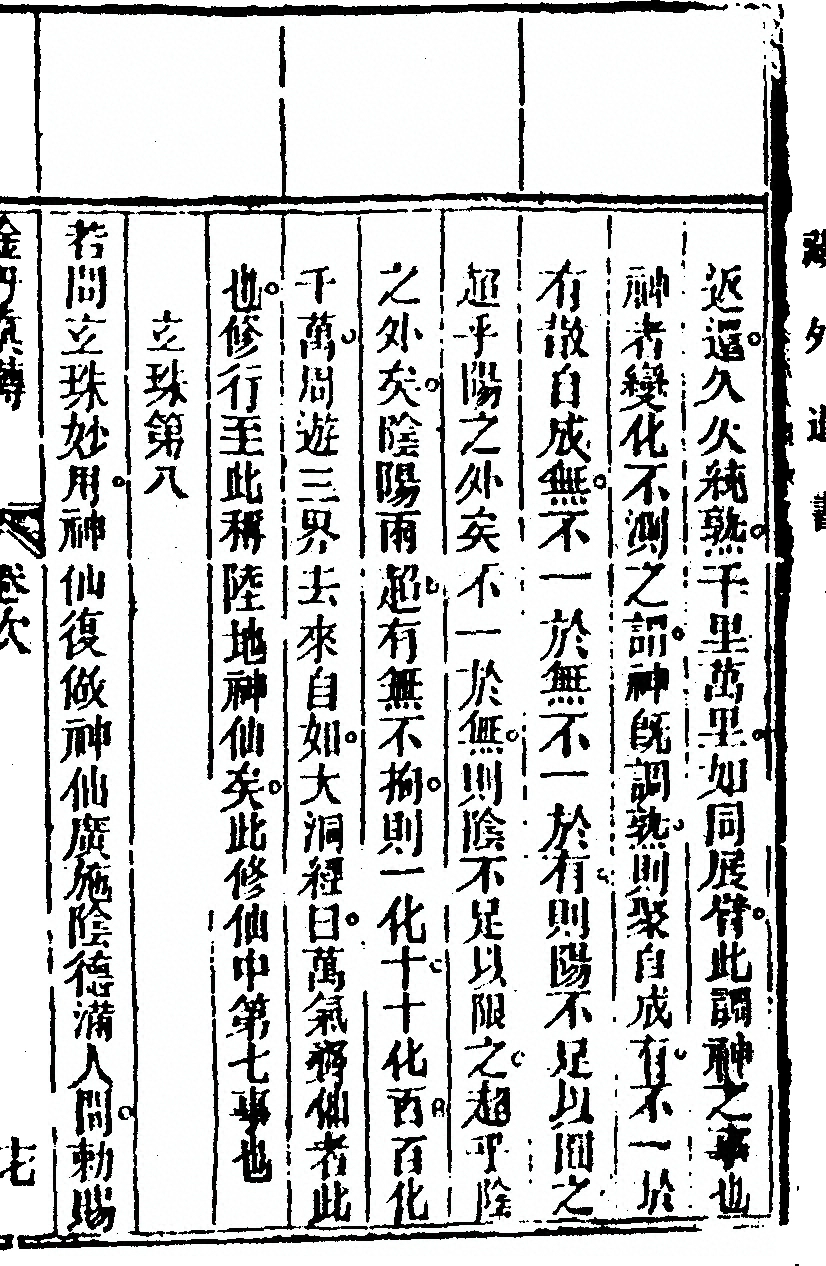 藏外道書
返還久久純熟千里萬里如同展臂此調神之事也
神者變化不測之謂神既調熟則聚自成有不一於
有散自成無不一於無不一於有則陽不足以囿之
超乎陽之外矣不一於無則陰不足以限之超乎陰
之外矣陰陽兩超有無不拘則一化十十化百百化
千萬周遊三界去來自如大洞經曰萬氣齊仙者此
也修行至此稱陸地神仙矣此修仙中第七事也
玄珠第八
若問玄珠妙用神仙復做神仙廣施陰德滿人間勅賜
金丹真傳
卷次